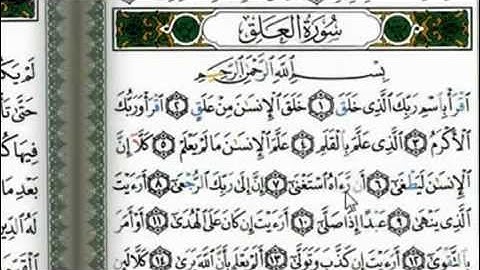 سُورَةُ العَلَقِ
بِسْمِ ٱللَّهِ ٱلرَّحْمَٰنِ ٱلرَّحِيمِ
ٱقْرَأْ بِٱسْمِ رَبِّكَ ٱلَّذِى خَلَقَ ١ خَلَقَ ٱلْإِنسَٰنَ مِنْ عَلَقٍ ٢ ٱقْرَأْ وَرَبُّكَ
ٱلْأَكْرَمُ ٣ ٱلَّذِى عَلَّمَ بِٱلْقَلَمِ ٤ عَلَّمَ ٱلْإِنسَٰنَ مَا لَمْ يَعْلَمْ ٥ كَلَّآ إِنَّ
ٱلْإِنسَٰنَ لَيَطْغَىٰٓ ٦ أَن رَّءَاهُ ٱسْتَغْنَىٰٓ ٧ إِنَّ إِلَىٰ رَبِّكَ ٱلرُّجْعَىٰٓ ٨ أَرَءَيْتَ
ٱلَّذِى يَنْهَىٰ ٩ عَبْدًا إِذَا صَلَّىٰٓ ١٠ أَرَءَيْتَ إِن كَانَ عَلَى ٱلْهُدَىٰٓ ١١ أَوْ أَمَرَ
بِٱلتَّقْوَىٰٓ ١٢ أَرَءَيْتَ إِن كَذَّبَ وَتَوَلَّىٰٓ ١٣ أَلَمْ يَعْلَم بِأَنَّ ٱللَّهَ يَرَىٰ ١٤ كَلَّا لَئِن
لَمْ
حَتَّىٰ
فِيهَا
بَعْدِ مَا
لَهُ ٱلدِّينَ